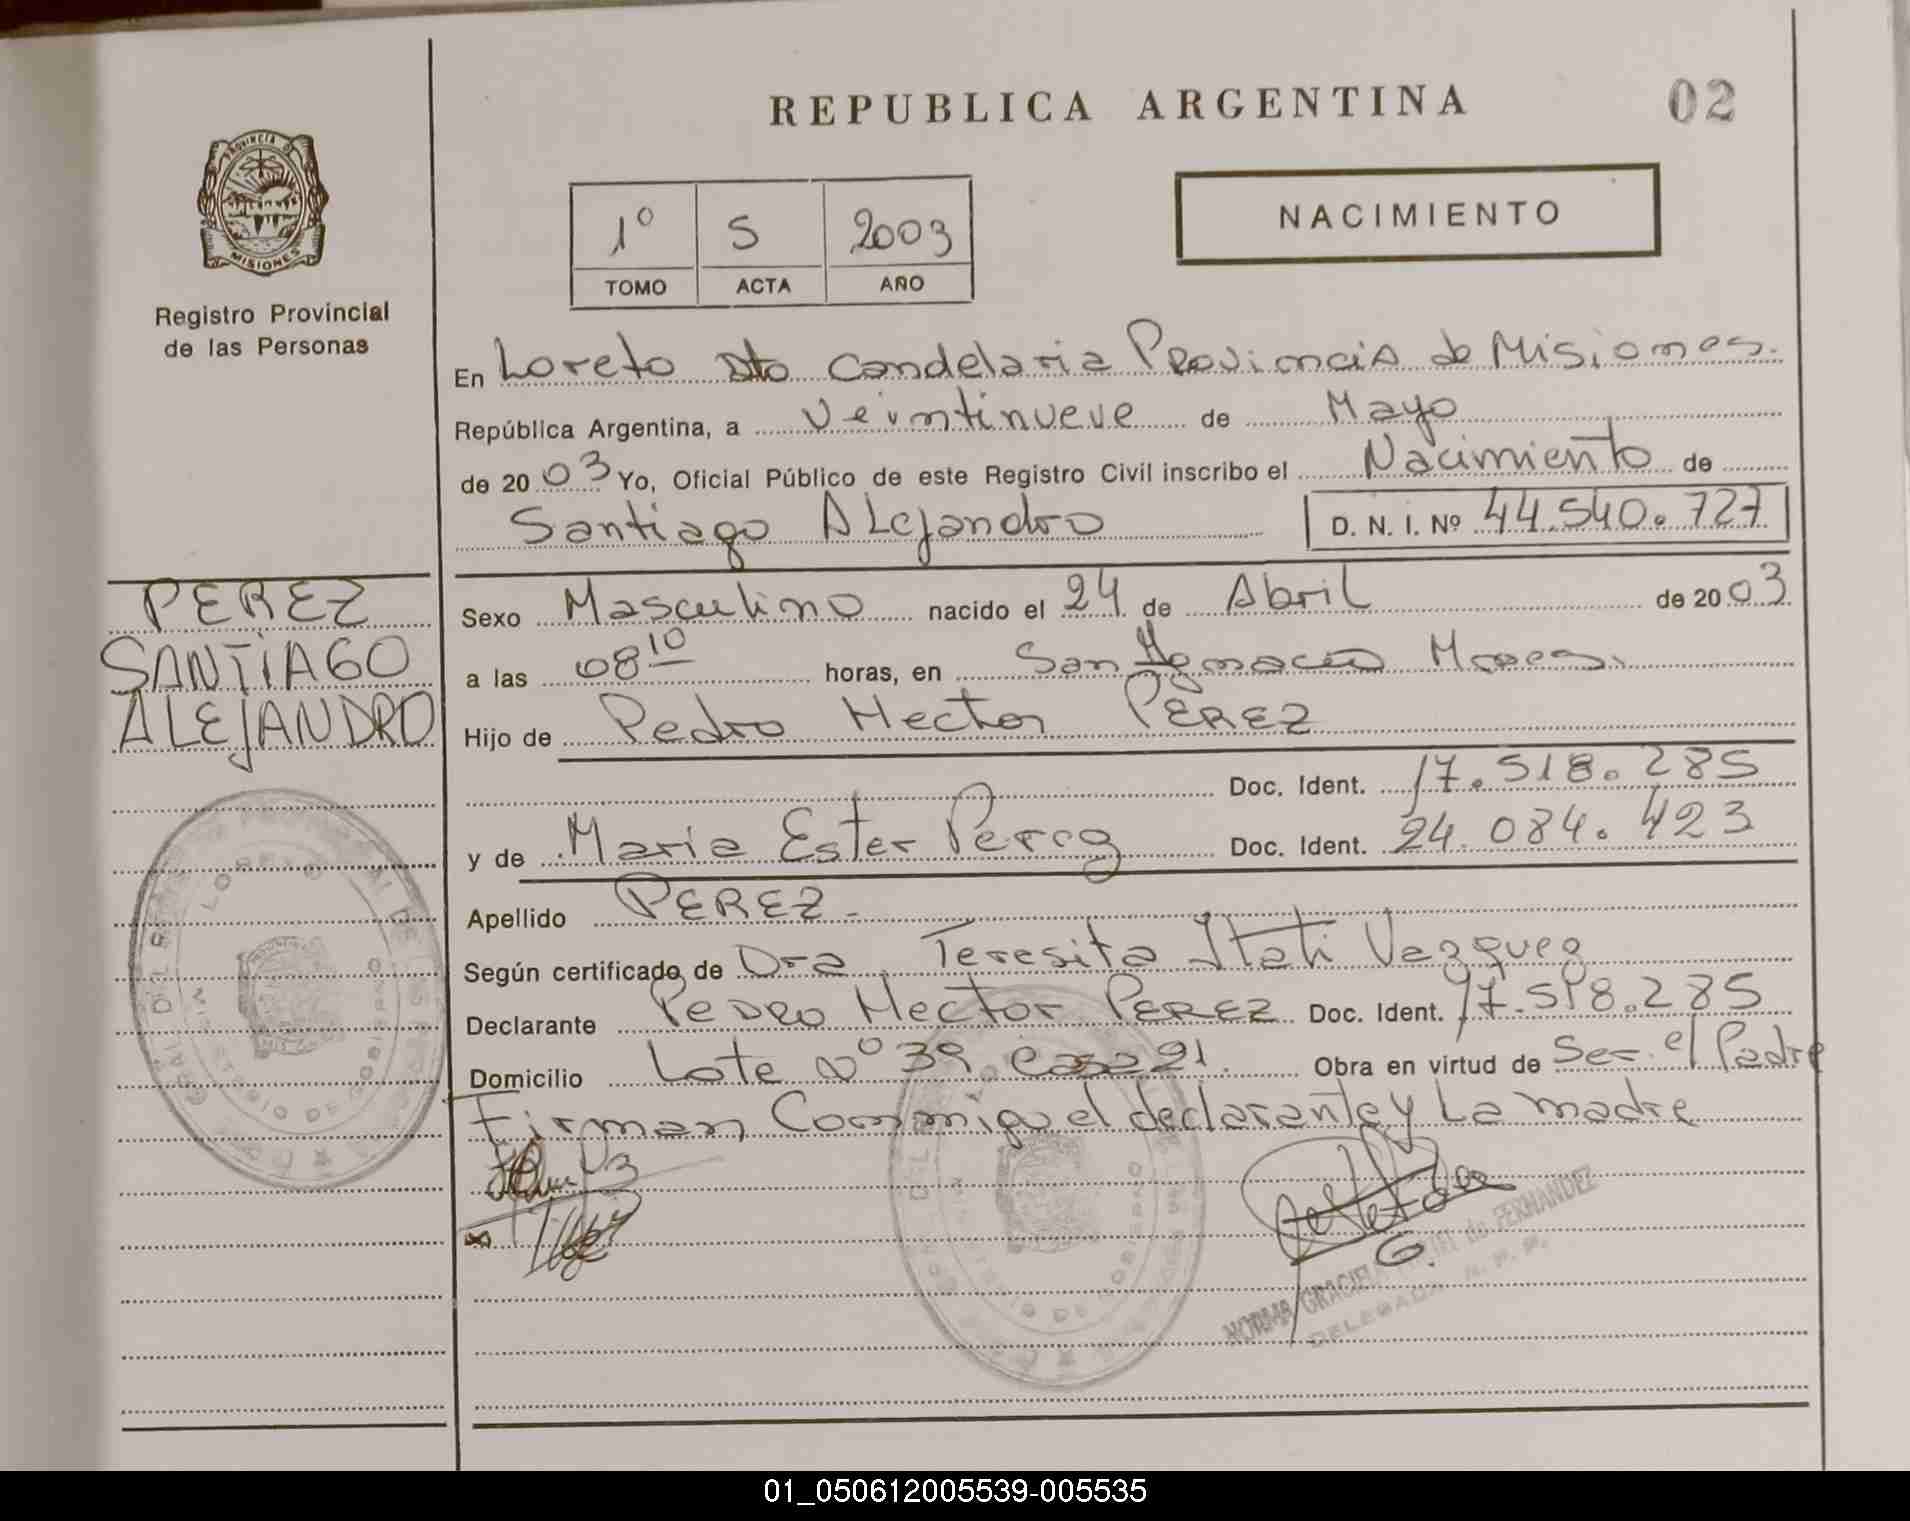 REPUBLICA ARGENTINA
02
PROVINCIA D
MISIONES
Registro Provincial
de las Personas
1º S 2003
TOMO ACTA AÑO
NACIMIENTO
En Loreto Dto Candelaria Provincia de Misiones.
República Argentina, a veintinueve de Mayo
de 2003 Yo, Oficial Público de este Registro Civil inscribo el Nacimiento de
Santiago Alejandro D. N. I. Nº 44.540.727
PEREZ
SANTIAGO
ALEJANDRO
Sexo Masculino nacido el 24 de Abril de 2003
a las 08 10 horas, en San Ignacio
Hijo de Pedro Hector PEREZ
Doc. Ident. 17.518.285
y de Maria Ester Perez Doc. Ident. 24.084.423
Apellido PEREZ
Según certificado de Dra Teresita Itati Vazquez
Declarante Pedro Hector PEREZ Doc. Ident. 17.518.285
Domicilio Lote Nº 39 Casa 21. Obra en virtud de Ser el Padre
Firman Conmigo el declarante y La madre
NORMA GRACIELA de FERNANDEZ
01_050612005539-005535